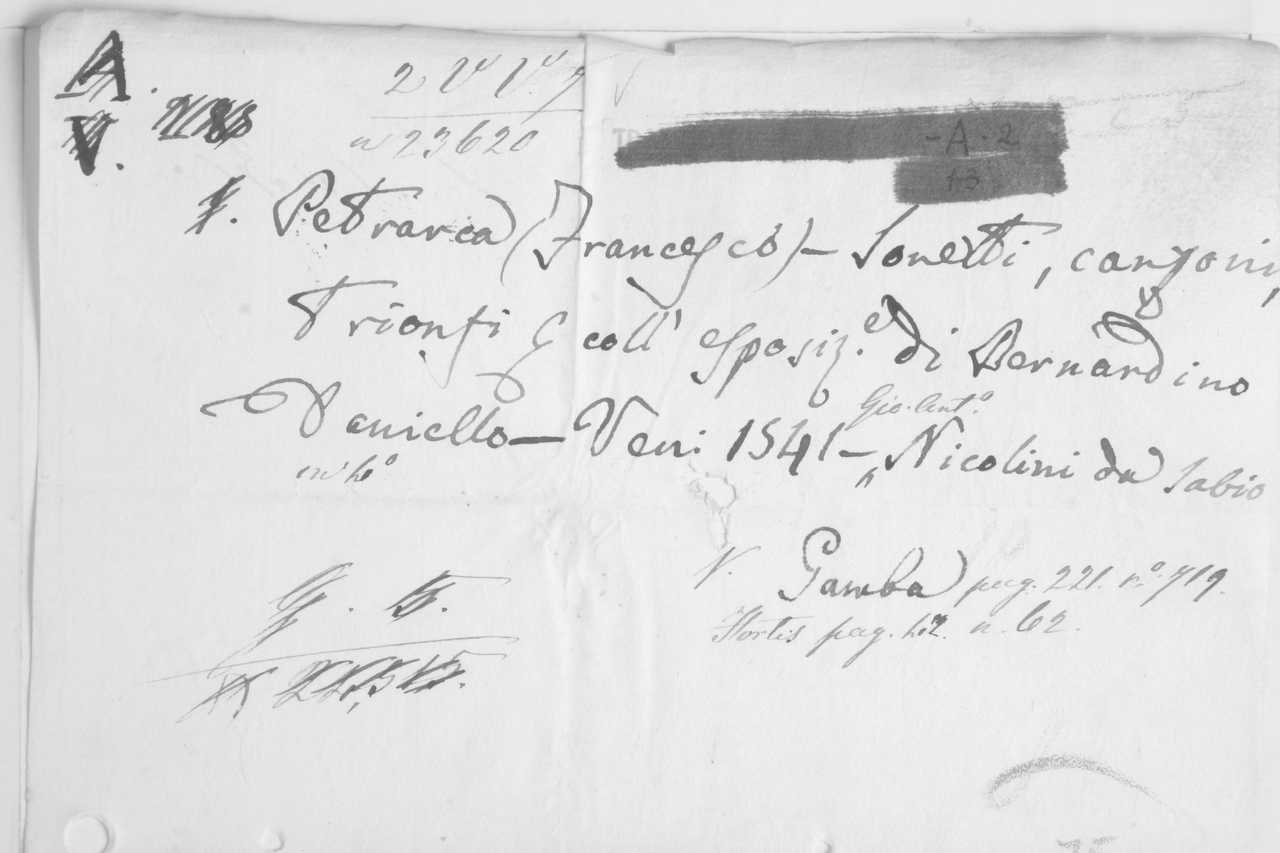 A.
V.
n 23620
-A-2
Petrarca (Francesco) – Sonetti, canzoni,
Trionfi coll' esposiz.e di Bernardino
Daniello – Ven: 1541 – Gio. Ant.o Nicolini da Sabio
in 4o
V. Gamba pag. 221. no. 719.
Hortis pag. n. 62.
G. 5.